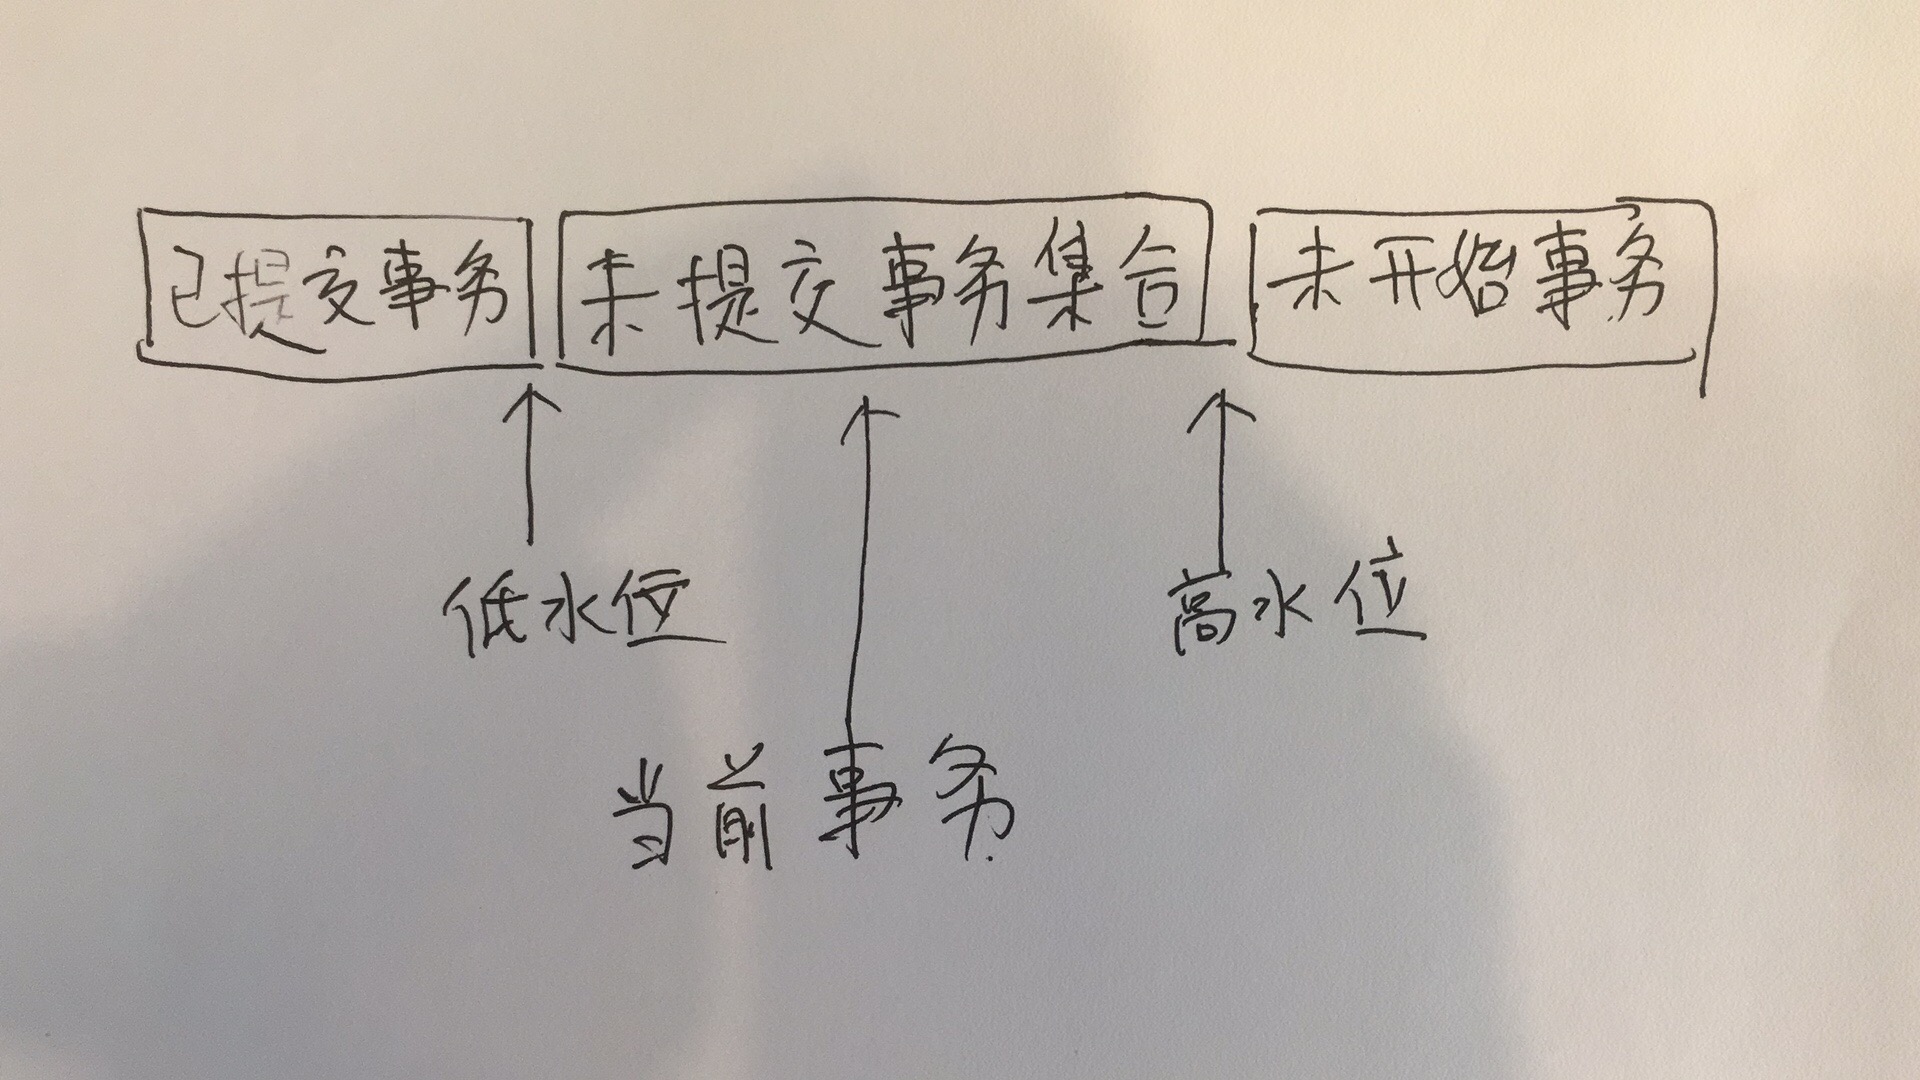 已提交事务 未提交事务集合 未开始事务
低水位 高水位
当前事务